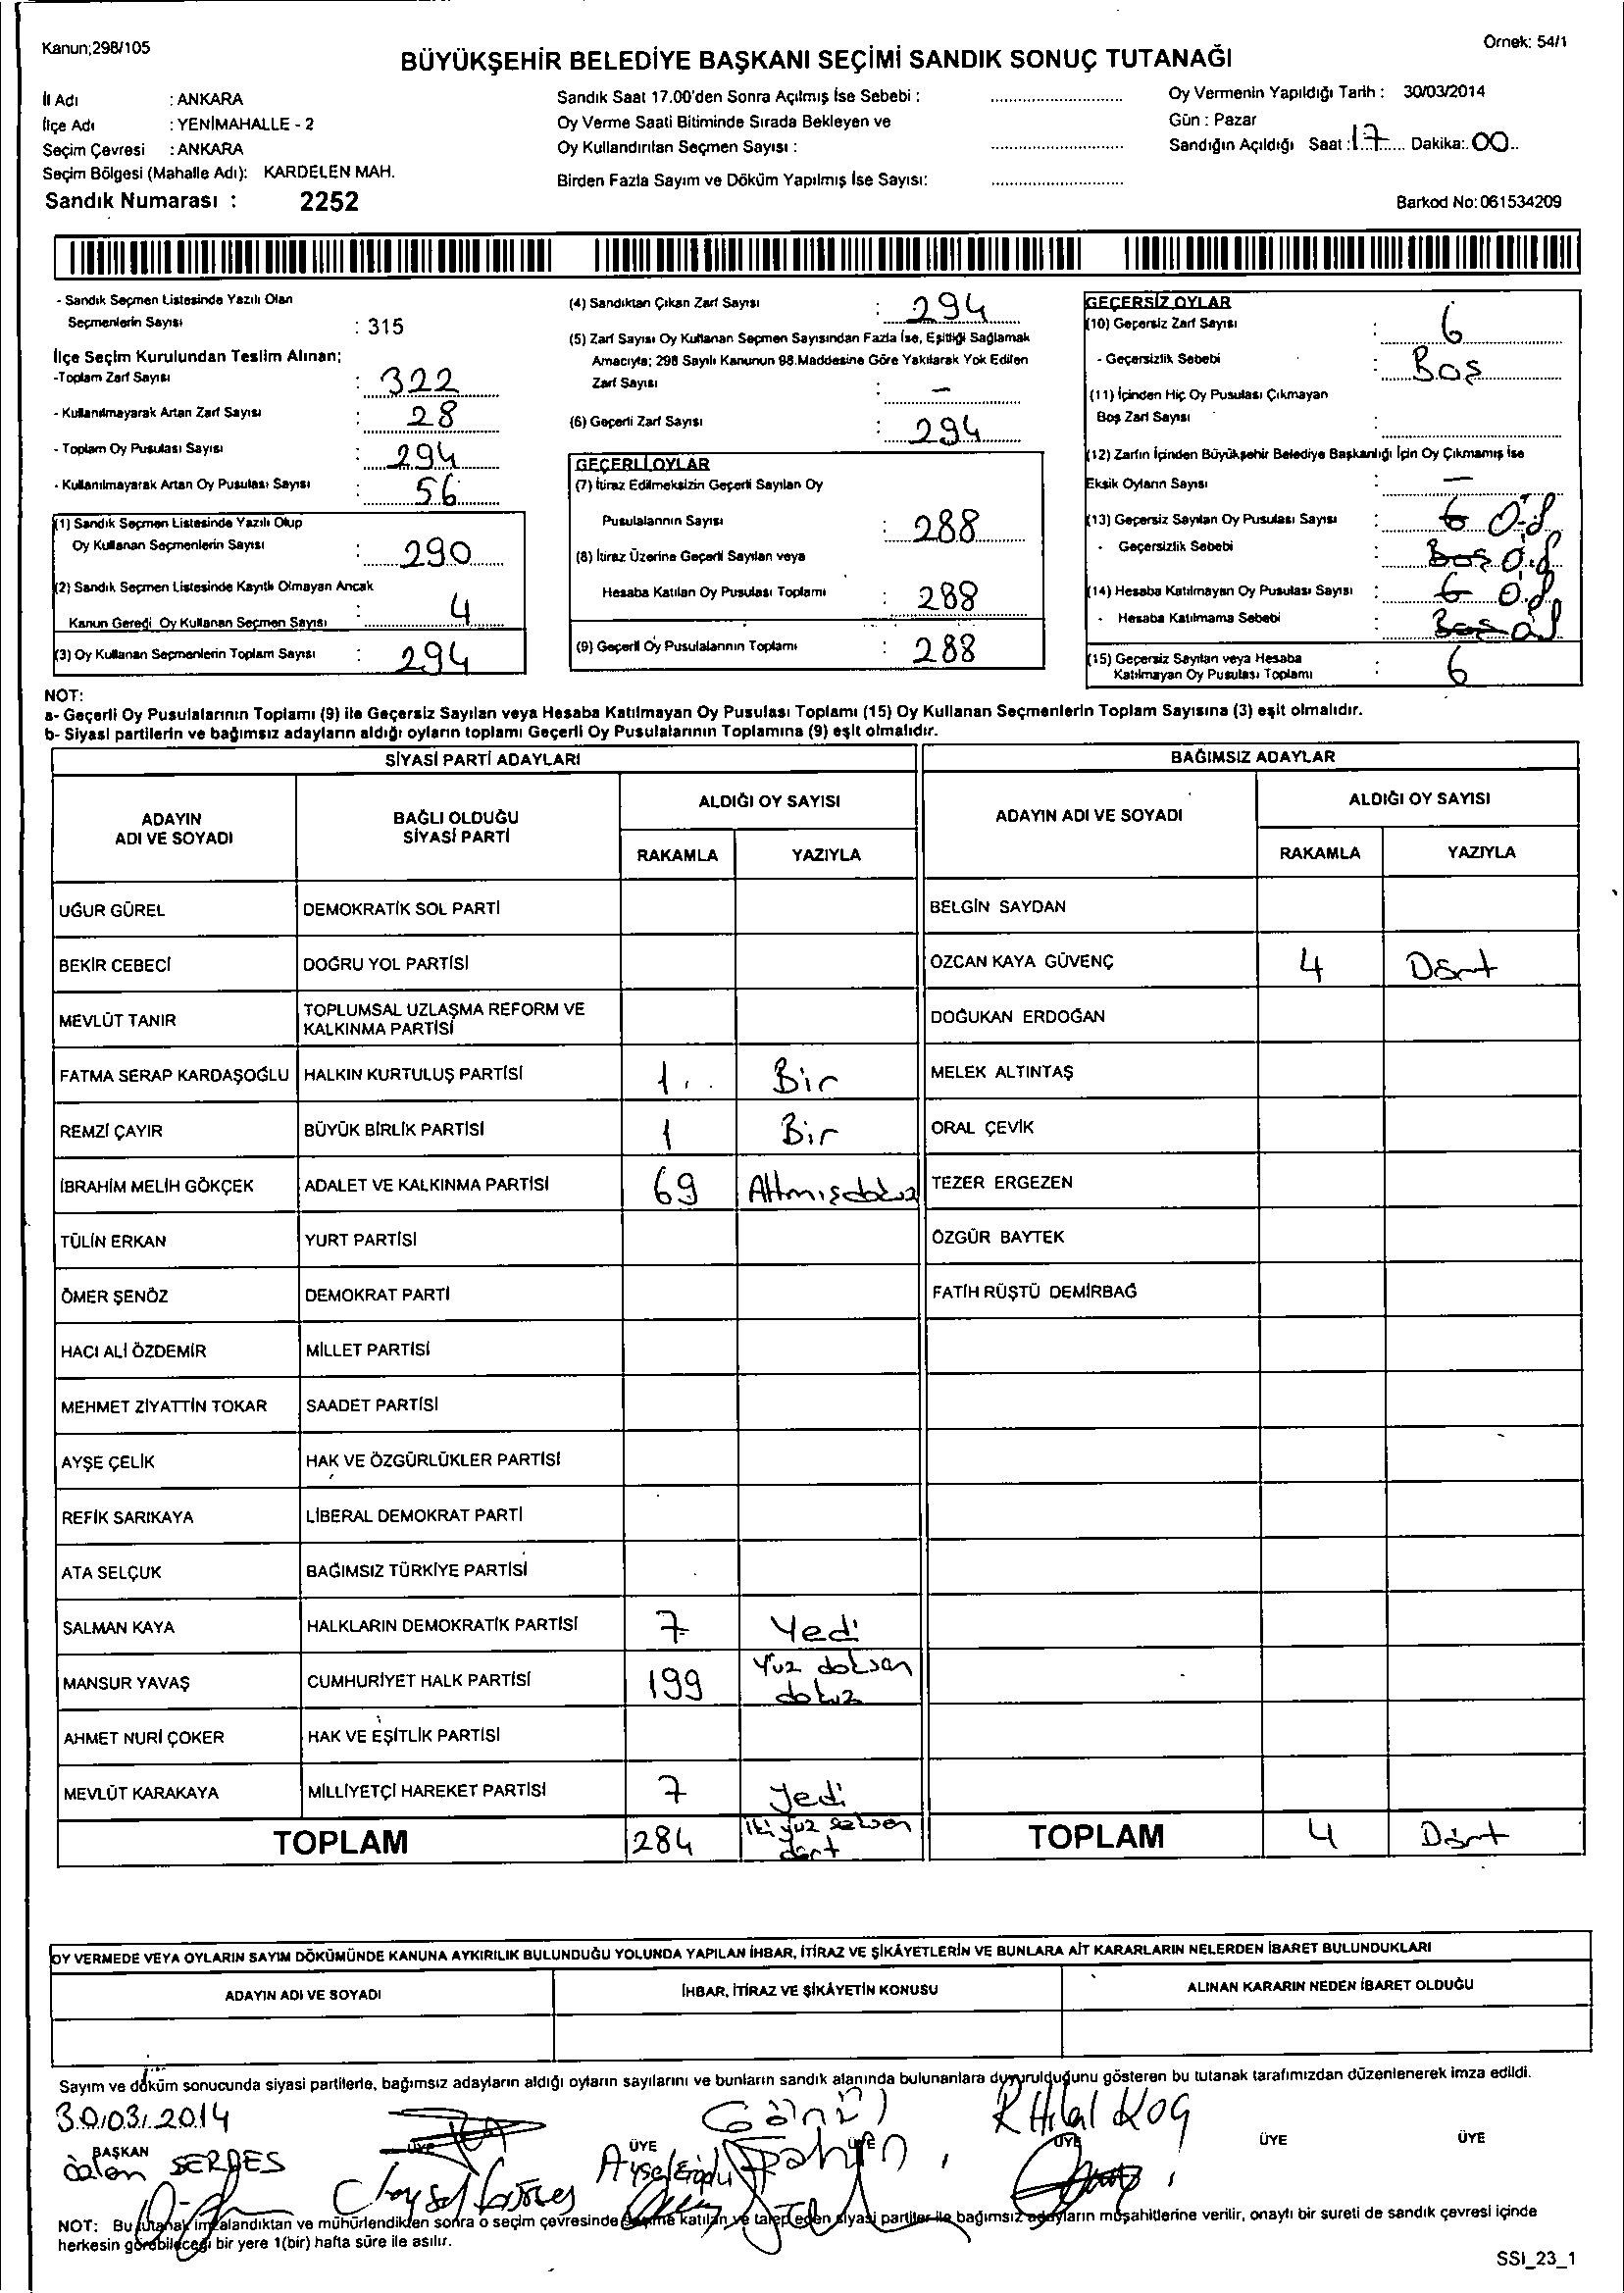 Kanun;298/105
Örnek: 54/1
BÜYÜKŞEHİR BELEDİYE BAŞKANI SEÇİMİ SANDIK SONUÇ TUTANAĞI
İl Adı : ANKARA
İlçe Adı : YENİMAHALLE - 2
Seçim Çevresi : ANKARA
Seçim Bölgesi (Mahalle Adı): KARDELEN MAH.
Sandık Numarası : 2252
Sandık Saat 17.00'den Sonra Açılmış İse Sebebi :
Oy Verme Saati Bitiminde Sırada Bekleyen ve
Oy Kullandırılan Seçmen Sayısı :
Birden Fazla Sayım ve Döküm Yapılmış İse Sayısı:
Oy Vermenin Yapıldığı Tarih : 30/03/2014
Gün : Pazar
Sandığın Açıldığı Saat : 17 Dakika: 00
Barkod No: 061534209
- Sandık Seçmen Listesinde Yazılı Olan
Seçmenlerin Sayısı : 315
İlçe Seçim Kurulundan Teslim Alınan;
-Toplam Zarf Sayısı : 322
- Kullanılmayarak Artan Zarf Sayısı : 28
- Toplam Oy Pusulası Sayısı : 294
- Kullanılmayarak Artan Oy Pusulası Sayısı : 56
(1) Sandık Seçmen Listesinde Yazılı Olup
Oy Kullanan Seçmenlerin Sayısı : 290
(2) Sandık Seçmen Listesinde Kayıtlı Olmayan Ancak
Kanun Gereği Oy Kullanan Seçmen Sayısı : 4
(3) Oy Kullanan Seçmenlerin Toplam Sayısı : 294
(4) Sandıktan Çıkan Zarf Sayısı : 294
(5) Zarf Sayısı Oy Kullanan Seçmen Sayısından Fazla İse, Eşitliği Sağlamak
Amacıyla; 298 Sayılı Kanunun 98.Maddesine Göre Yakılarak Yok Edilen
Zarf Sayısı : -
(6) Geçerli Zarf Sayısı : 294
GEÇERLİ OYLAR
(7) İtiraz Edilmeksizin Geçerli Sayılan Oy
Pusulalarının Sayısı : 288
(8) İtiraz Üzerine Geçerli Sayılan veya
Hesaba Katılan Oy Pusulası Toplamı : 288
(9) Geçerli Oy Pusulalarının Toplamı : 288
GEÇERSİZ OYLAR
(10) Geçersiz Zarf Sayısı : 6
- Geçersizlik Sebebi : Boş
(11) İçinden Hiç Oy Pusulası Çıkmayan
Boş Zarf Sayısı :
(12) Zarfın İçinden Büyükşehir Belediye Başkanlığı İçin Oy Çıkmamış İse
Eksik Oyların Sayısı : -
(13) Geçersiz Sayılan Oy Pusulası Sayısı : 6
- Geçersizlik Sebebi : Boş
(14) Hesaba Katılmayan Oy Pusulası Sayısı : 6
- Hesaba Katılmama Sebebi : Boş
(15) Geçersiz Sayılan veya Hesaba
Katılmayan Oy Pusulası Toplamı : 6
NOT:
a- Geçerli Oy Pusulalarının Toplamı (9) ile Geçersiz Sayılan veya Hesaba Katılmayan Oy Pusulası Toplamı (15) Oy Kullanan Seçmenlerin Toplam Sayısına (3) eşit olmalıdır.
b- Siyasi partilerin ve bağımsız adayların aldığı oyların toplamı Geçerli Oy Pusulalarının Toplamına (9) eşit olmalıdır.
SİYASİ PARTİ ADAYLARI
ADAYIN ADI VE SOYADI
BAĞLI OLDUĞU SİYASİ PARTİ
ALDIĞI OY SAYISI
RAKAMLA YAZIYLA
UĞUR GÜREL DEMOKRATİK SOL PARTİ
BEKİR CEBECİ DOĞRU YOL PARTİSİ
MEVLÜT TANIR TOPLUMSAL UZLAŞMA REFORM VE
KALKINMA PARTİSİ
FATMA SERAP KARDAŞOĞLU HALKIN KURTULUŞ PARTİSİ 1 Bir
REMZİ ÇAYIR BÜYÜK BİRLİK PARTİSİ 1 Bir
İBRAHİM MELİH GÖKÇEK ADALET VE KALKINMA PARTİSİ 69 Altmışdokuz
TÜLİN ERKAN YURT PARTİSİ
ÖMER ŞENÖZ DEMOKRAT PARTİ
HACI ALİ ÖZDEMİR MİLLET PARTİSİ
MEHMET ZİYATTİN TOKAR SAADET PARTİSİ
AYŞE ÇELİK HAK VE ÖZGÜRLÜKLER PARTİSİ
REFİK SARIKAYA LİBERAL DEMOKRAT PARTİ
ATA SELÇUK BAĞIMSIZ TÜRKİYE PARTİSİ
SALMAN KAYA HALKLARIN DEMOKRATİK PARTİSİ 7 Yedi
MANSUR YAVAŞ CUMHURİYET HALK PARTİSİ 199 Yüz doksan
dokuz
AHMET NURİ ÇOKER HAK VE EŞİTLİK PARTİSİ
MEVLÜT KARAKAYA MİLLİYETÇİ HAREKET PARTİSİ 7 Yedi
TOPLAM 284 İki yüz seksen
dört
BAĞIMSIZ ADAYLAR
ADAYIN ADI VE SOYADI
ALDIĞI OY SAYISI
RAKAMLA YAZIYLA
BELGİN SAYDAN
ÖZCAN KAYA GÜVENÇ 4 Dört
DOĞUKAN ERDOĞAN
MELEK ALTINTAŞ
ORAL ÇEVİK
TEZER ERGEZEN
ÖZGÜR BAYTEK
FATİH RÜŞTÜ DEMİRBAĞ
TOPLAM 4 Dört
OY VERMEDE VEYA OYLARIN SAYIM DÖKÜMÜNDE KANUNA AYKIRILIK BULUNDUĞU YOLUNDA YAPILAN İHBAR, İTİRAZ VE ŞİKÂYETLERİN VE BUNLARA AİT KARARLARIN NELERDEN İBARET BULUNDUKLARI
ADAYIN ADI VE SOYADI İHBAR, İTİRAZ VE ŞİKÂYETİN KONUSU ALINAN KARARIN NEDEN İBARET OLDUĞU
Sayım ve döküm sonucunda siyasi partilerle, bağımsız adayların aldığı oyların sayılarını ve bunların sandık alanında bulunanlara duyurulduğunu gösteren bu tutanak tarafımızdan düzenlenerek imza edildi.
30/03/2014
R Hilal KOÇ
BAŞKAN ÜYE ÜYE ÜYE ÜYE ÜYE ÜYE
NOT: Bu tutanak imzalandıktan ve mühürlendikten sonra o seçim çevresinde seçime katılan ve talep eden siyasi partiler ile bağımsız adayların müşahitlerine verilir, onaylı bir sureti de sandık çevresi içinde
herkesin görebileceği bir yere 1(bir) hafta süre ile asılır.
SSI_23_1